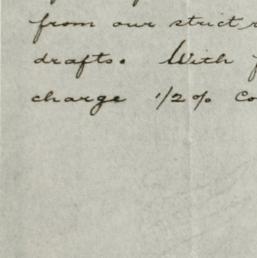 from our strict
drafts. With
charge 1/2% Co